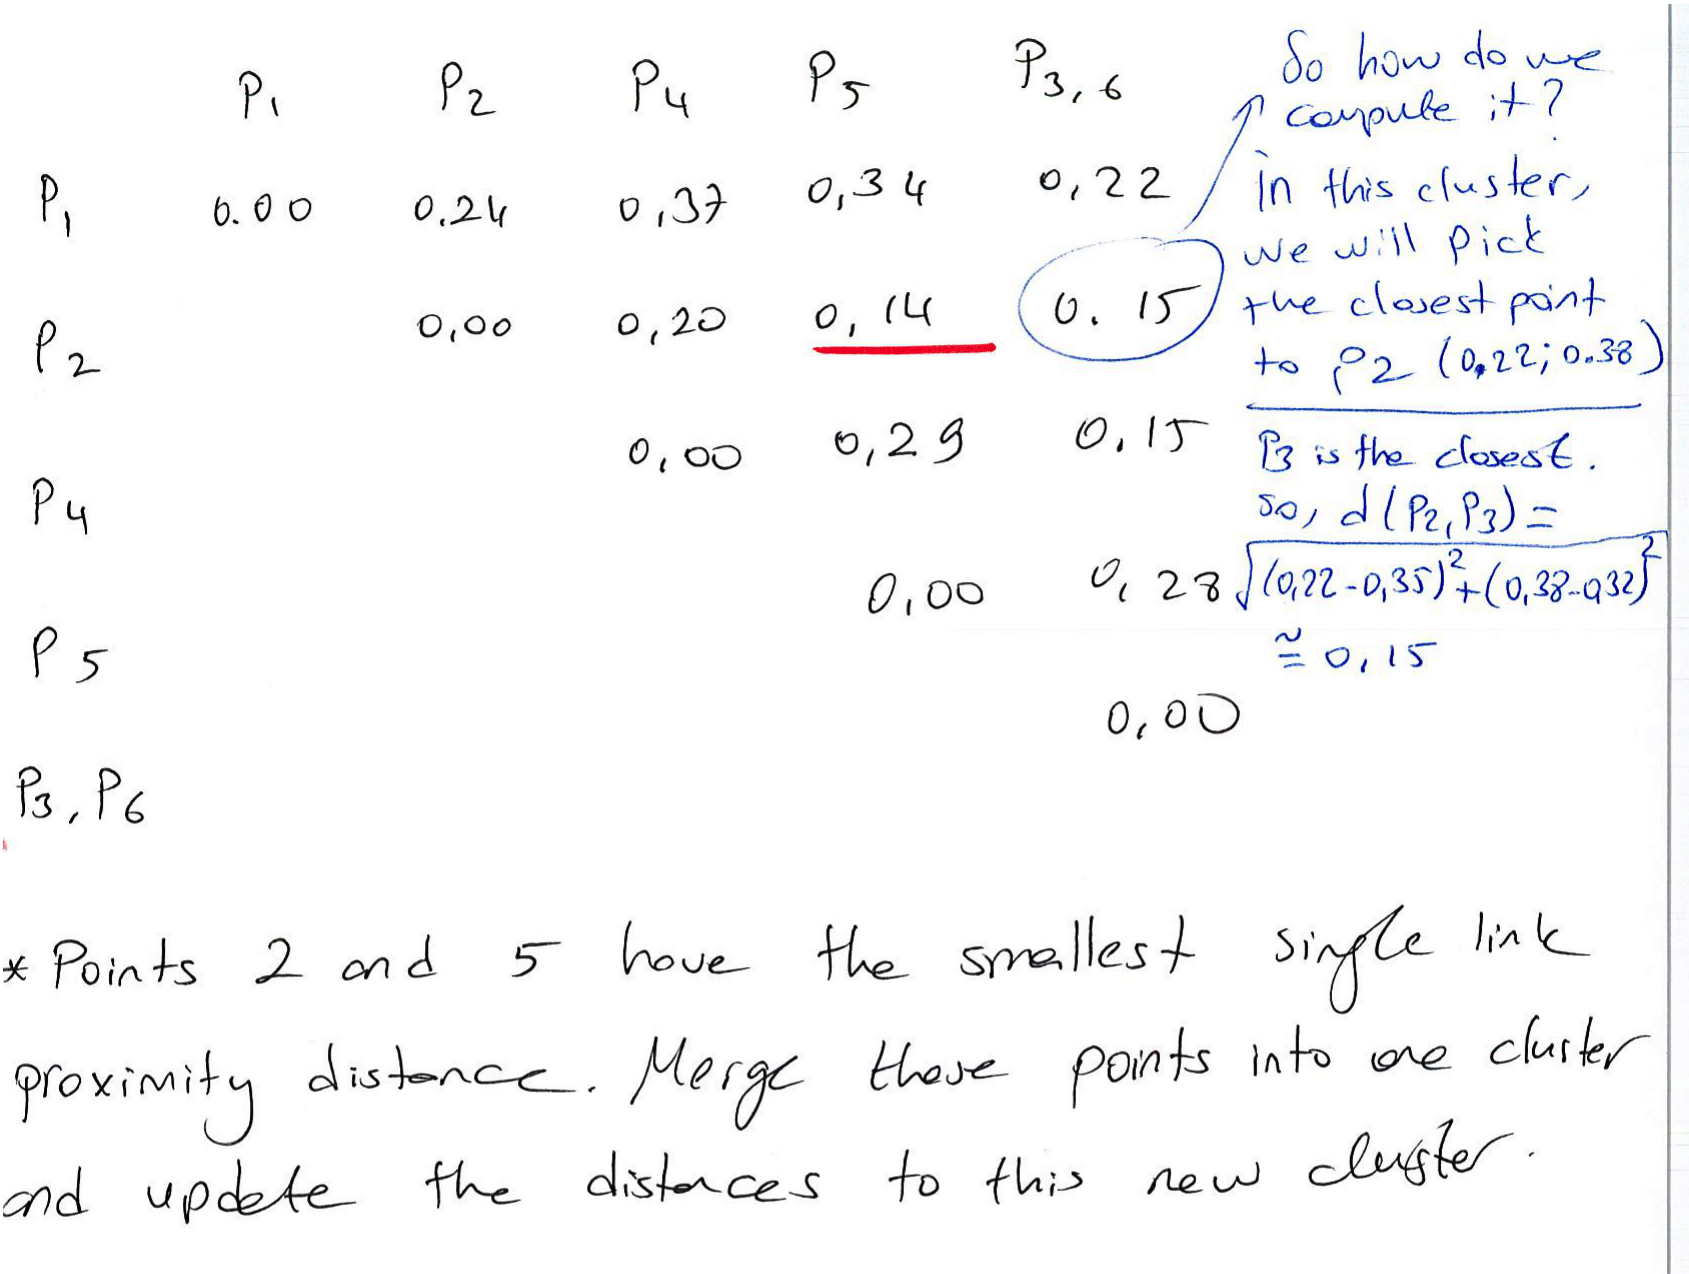 P1 P2 P4 P5 P3,6
P1 0.00 0.24 0,37 0,34 0,22
P2 0,00 0,20 0,14 0.15
P4 0,00 0,29 0.15
P5 0,00 0,28
P3, P6 0,00
So how do we
compute it?
in this cluster,
we will pick
the closest point
to P2 (0,22; 0.38)
P3 is the closest.
so, d(P2,P3) =
√(0,22-0,35)²+(0,38-0,32)²
≅ 0,15
* Points 2 and 5 have the smallest single link
proximity distance. Merge these points into one cluster
and update the distances to this new cluster.